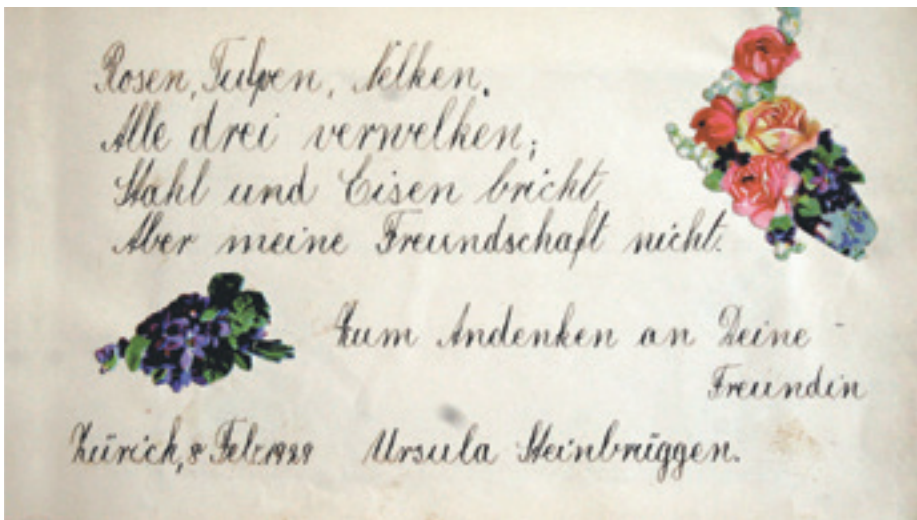 Rosen, Tulpen, Nelken,
Alle drei verwelken;
Stahl und Eisen bricht,
Aber meine Freundschaft nicht.
Zum Andenken an Deine
Freundin
Zürich, 8 Feb. Ursula Steinbrüggen.